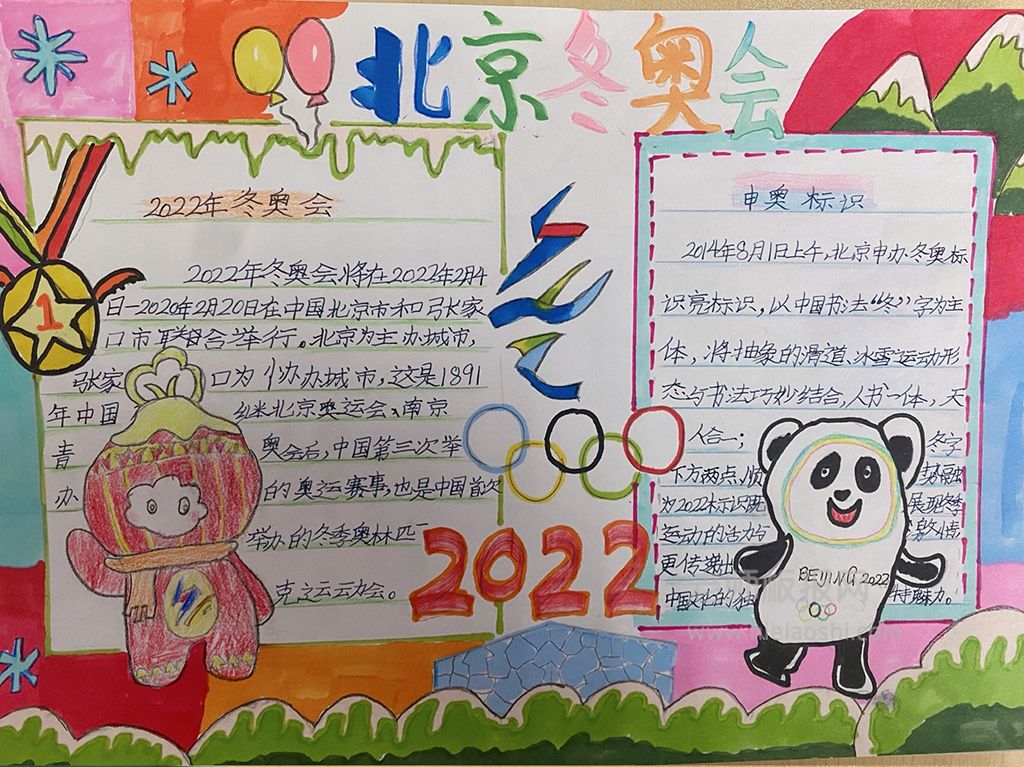 北京冬奥会
1
2022年冬奥会
2022年冬奥会将在2022年2月4
日—2020年2月20日在中国北京市和张家
口市联合举行。北京为主办城市,
张家口为协办城市,这是1891
年中国 继北京奥运会、南京
青 奥会后,中国第三次举
办 的奥运赛事,也是中国首次
举办的冬季奥林匹
克运动会。
2022
申奥标识
2014年8月1日上午,北京申办冬奥标
识亮标识,以中国书法“冬”字为主
体,将抽象的滑道、冰雪运动形
态与书法巧妙结合,人书一体,天
人合一; 冬字
下方两点,顺 势融
为2022标识既 展现冬季
运动的活力与 激情
更传递出
中国文化的独 特魅力。
BEIJING 2022